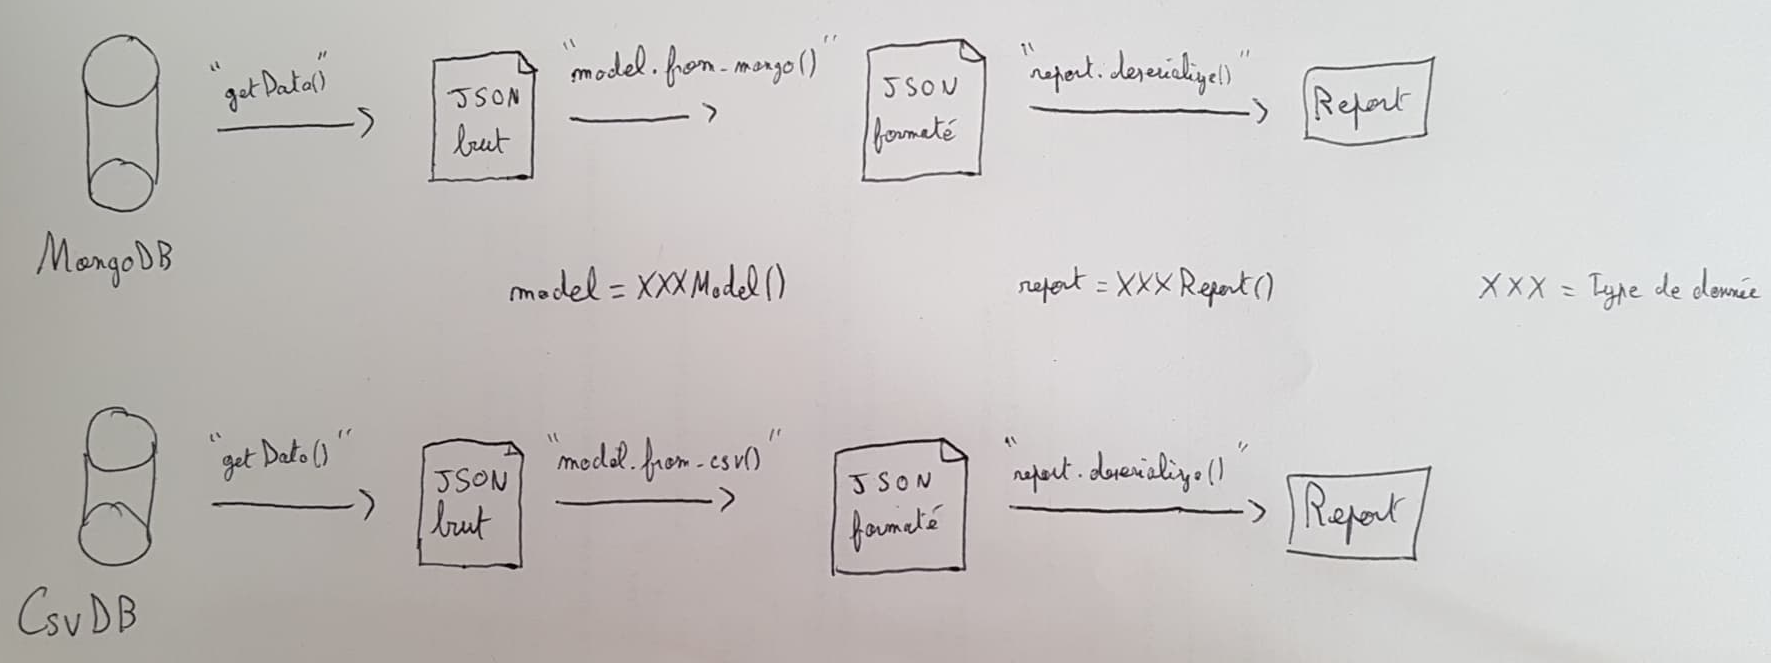 "getData()"
JSON
brut
"model.from_mongo()"
JSON
formaté
"report.deserialize()"
Report
MongoDB
model = XXXModel()
report = XXXReport()
XXX = Type de donnée
"getData()"
JSON
brut
"model.from_csv()"
JSON
formaté
"report.deserialize()"
Report
CsvDB